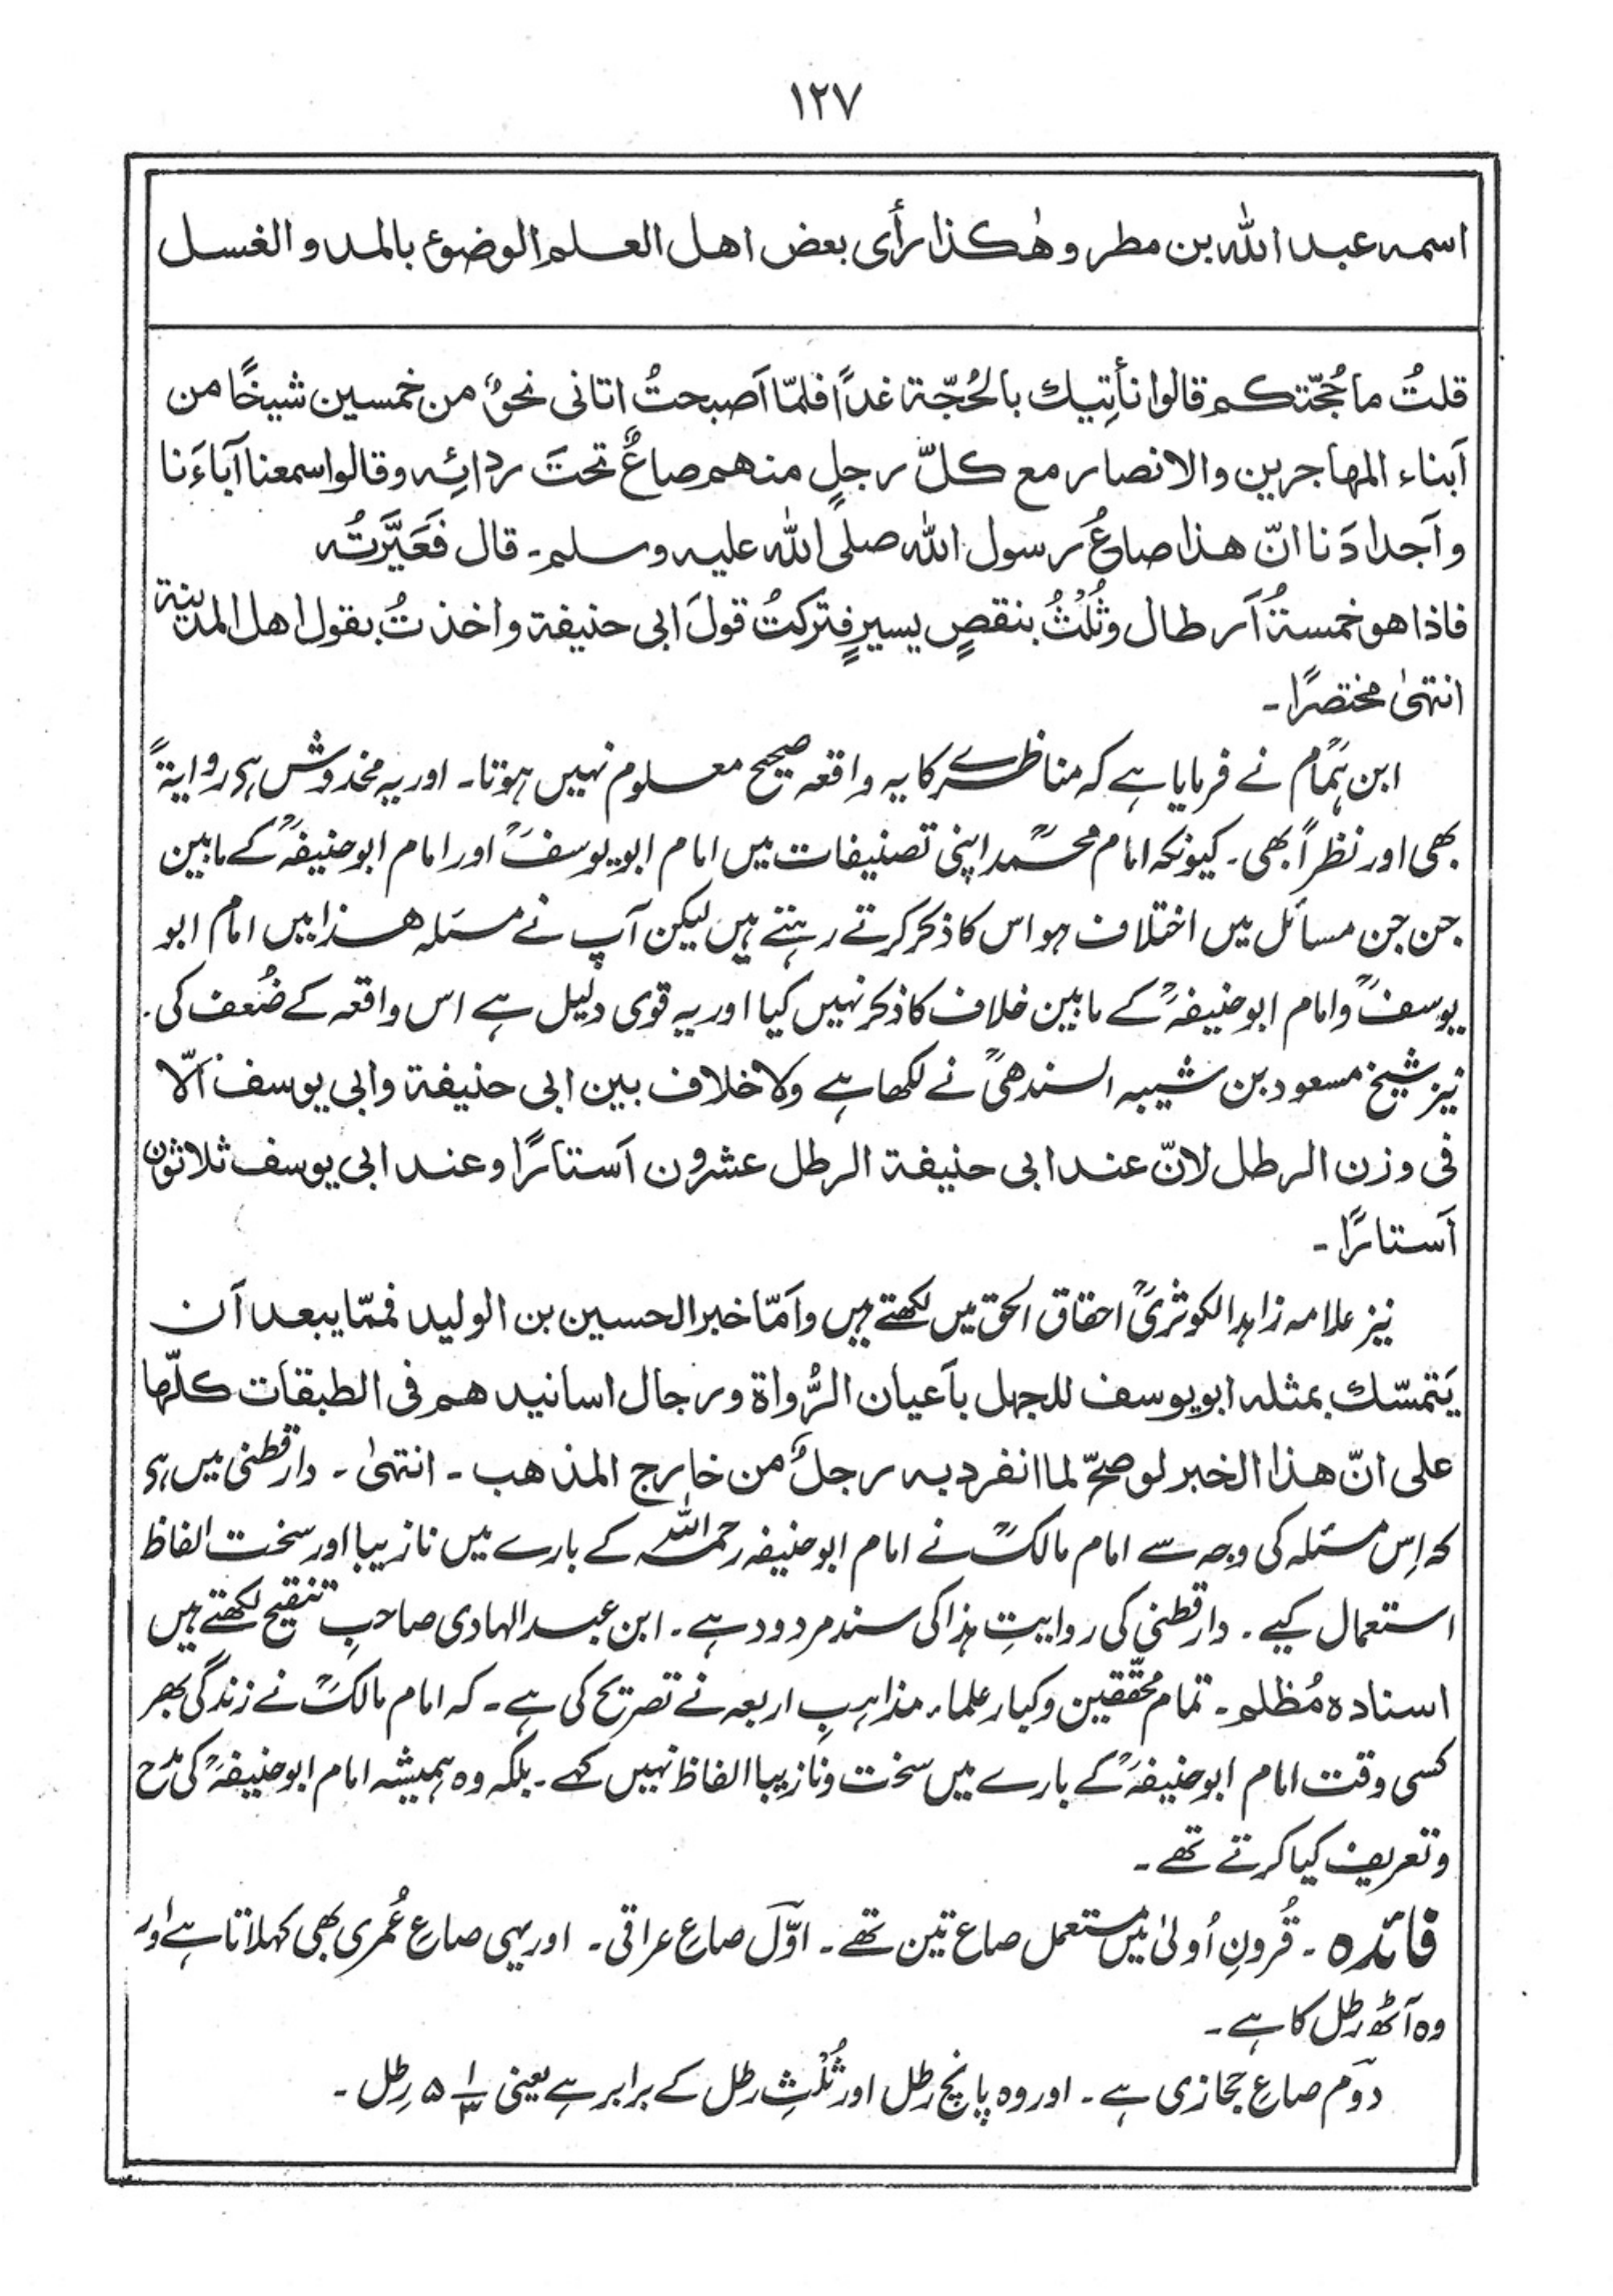 ۱۲۷
اسمہ عبد اللہ بن مطر وھٰکذا رأی بعض اھل العلم الوضوء بالمد و الغسل
قلتُ ما حُجّتکم قالوا نأتِیك بالحُجّة غدًا فلمّا اَصبحتُ اتانی نحوٌ من خمسین شیخًا من
اَبناء المھاجرین والانصار مع کلّ رجلٍ منھم صاعٌ تحتَ ردائِہ وقالوا سمعنا آباءَنا
واَجدادَنا انّ ھذا صاعُ رسول اللہ صلی اللہ علیہ وسلم۔ قال فَعَیَّرتُہ
فاذا ھو خمسةُ اَرطال وثُلُثُ بنقصٍ یسیرٍ فترکتُ قولَ ابی حنیفة واخذتُ بقول اھل المدینة
انتہیٰ مختصرًا۔
ابن ہمامؒ نے فرمایا ہے کہ مناظرے کا یہ واقعہ صحیح معلوم نہیں ہوتا۔ اور یہ مخدوش ہی روایةً
بھی اور نظراً بھی۔ کیونکہ امام محمدؒ اپنی تصنیفات میں امام ابویوسفؒ اور امام ابوحنیفہؒ کے مابین
جن جن مسائل میں اختلاف ہو اس کا ذکر کرتے رہتے ہیں لیکن آپ نے مسئلہ ھذا میں امام ابو
یوسفؒ وامام ابوحنیفہؒ کے مابین خلاف کا ذکر نہیں کیا اور یہ قوی دلیل ہے اس واقعہ کے ضُعف کی۔
نیز شیخ مسعود بن شیبہ السندھیؒ نے لکھا ہے ولا خلاف بین ابی حنیفة وابی یوسف اَلّا
فی وزن الرطل لانّ عند ابی حنیفة الرطل عشرون اَستارًا وعند ابی یوسف ثلاثون
اَستارًا۔
نیز علامہ زاہد الکوثریؒ احقاق الحق میں لکھتے ہیں واَمّا خبر الحسین بن الولید فممّا یبعد اَن
یَتمسّك بمثلہ ابویوسف للجہل باَعیان الرُّواة ورجال اسانیدھم فی الطبقات کلّھا
علی انّ ھذا الخبر لو صحّ لما انفرد بہ رجلٌ من خارج المذھب۔ انتہیٰ۔ دارقطنی میں ہی
کہ اِس مسئلہ کی وجہ سے امام مالکؒ نے امام ابوحنیفہ رحمہ اللہ کے بارے میں نازیبا اور سخت الفاظ
استعمال کیے۔ دارقطنی کی روایتِ ہذا کی سند مردود ہے۔ ابن عبد الہادی صاحبِ تنقیح لکھتے ہیں
اسنادہ مُظلم۔ تمام محقّقین وکبار علماء مذاہبِ اربعہ نے تصریح کی ہے۔ کہ امام مالکؒ نے زندگی بھر
کسی وقت امام ابوحنیفہؒ کے بارے میں سخت ونازیبا الفاظ نہیں کہے۔ بلکہ وہ ہمیشہ امام ابوحنیفہؒ کی مدح
وتعریف کیا کرتے تھے۔
فائدہ۔ قُرونِ اُولیٰ میں مستعمل صاع تین تھے۔ اوّل صاعِ عراقی۔ اور یہی صاعِ عُمری بھی کہلاتا ہے اور
وہ آٹھ رطل کا ہے۔
دوم صاعِ حجازی ہے۔ اور وہ پانچ رطل اور ثُلُثِ رطل کے برابر ہے یعنی ۵ ۱/۳ رِطل۔